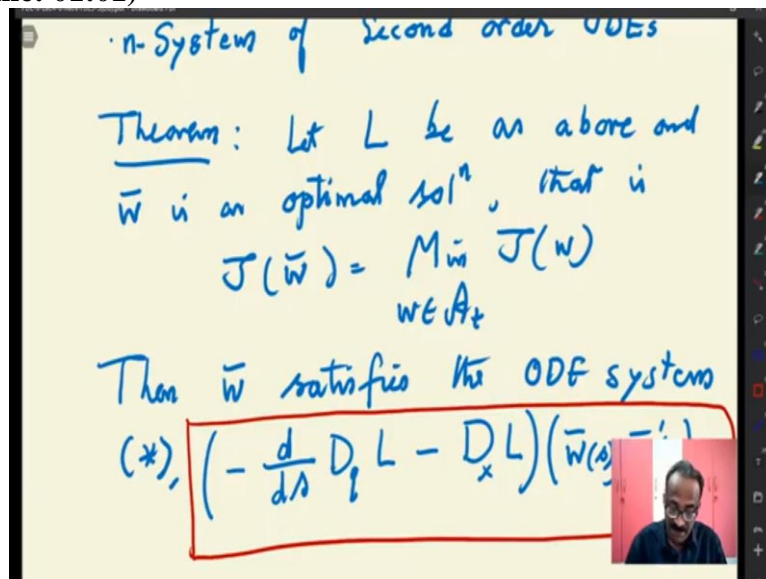 · n-System of Second order ODEs
Theorem: Let L be as above and
w̄ is an optimal solⁿ, that is
J(w̄) = Min J(w)
w∈A_t
Then w̄ satisfies the ODE system
(*), (- d/ds D_q L - D_x L)(w̄(s)